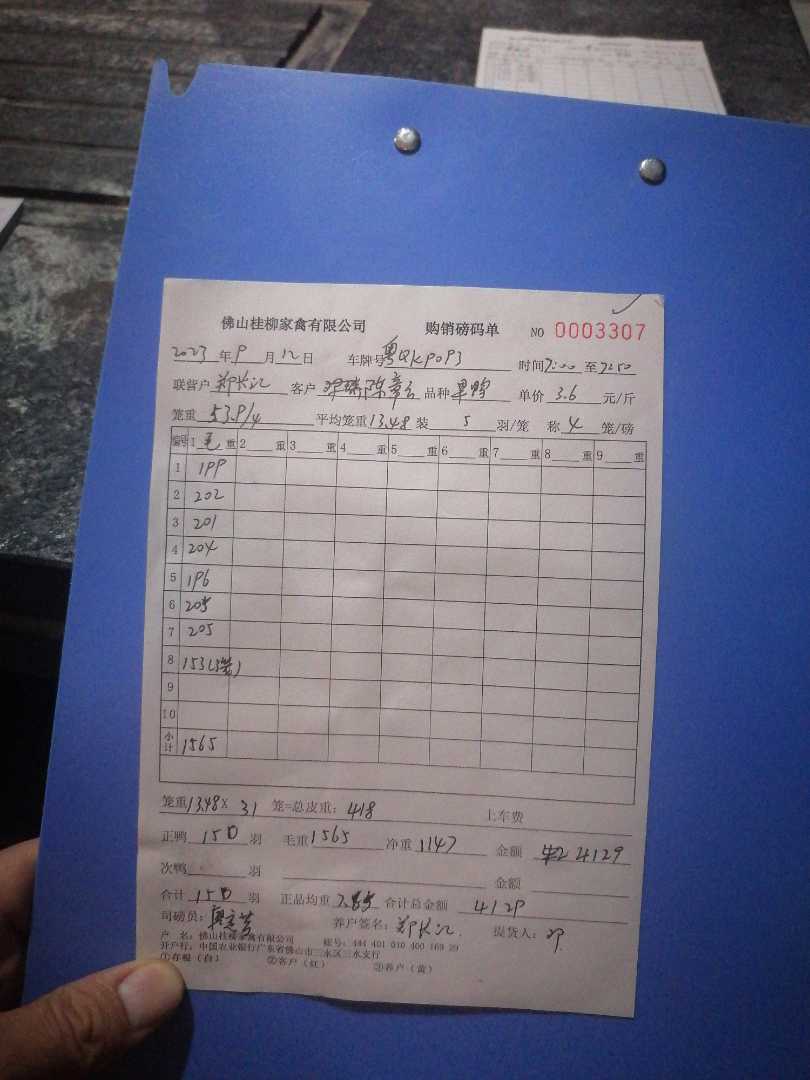 佛山桂柳家禽有限公司 购销磅码单 NO 0003307
2023年9月12日 车牌号粤QKP093 时间7:00至7:50
联营户郑长江 客户 品种 单价3.6元/斤
笼重53.9/4 平均笼重13.48装5羽/笼 称4笼/磅
编号 1毛重 2重 3重 4重 5重 6重 7重 8重 9重
1 199
2 202
3 201
4 204
5 196
6 205
7 205
8 153(3笼)
9
10
小计 1565
笼重13.48X31笼=总皮重:418 上车费
正鸭150羽 毛重1565 净重1147 金额 4129
次鸭羽 金额
合计150羽 正品均重 合计总金额4129
司磅员: 养户签名:郑长江 提货人:邓
户 名:佛山桂柳家禽有限公司 账号:444 401 010 400 169 29
开户行:中国农业银行广东省佛山市三水区三水支行
①存根(白) ②客户(红) ③养户(黄)